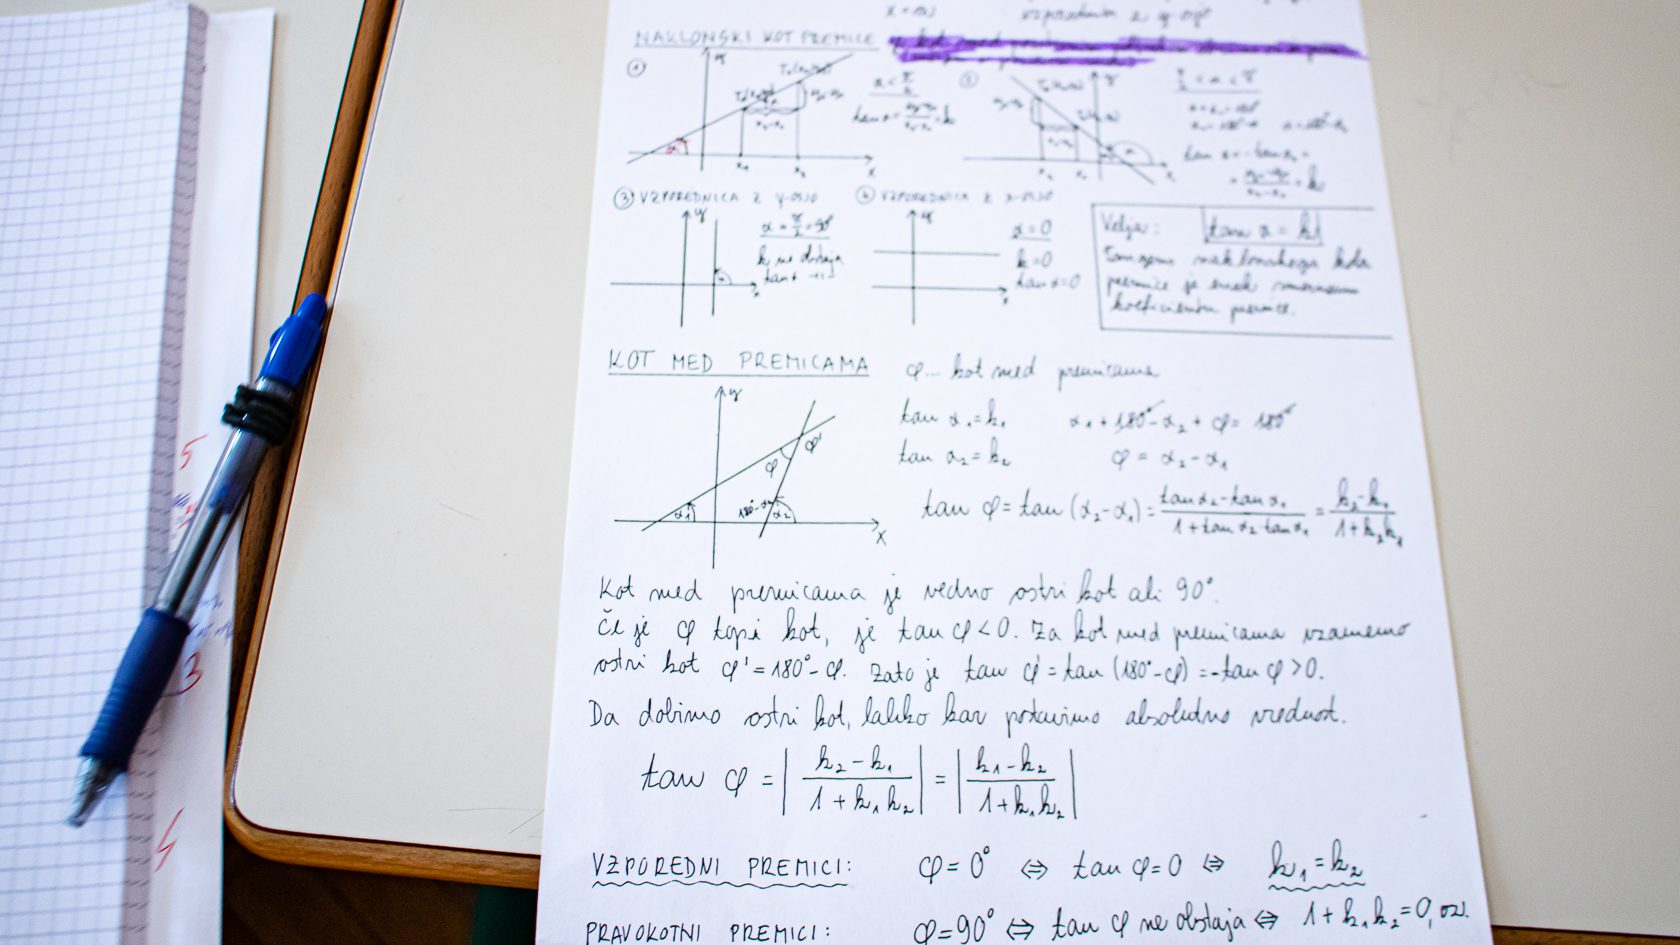 x = 0
vzporednica z y-osjo
NAKLONSKI KOT PREMICE
① y x α x₁ x₂ x₂-x₁ y₂-y₁
α < π/2
tan α = (y₂-y₁)/(x₂-x₁) = k
② y x α
π/2 < α < π
= (y₂-y₁)/(x₂-x₁) = k
③ VZPOREDNICA Z y-OSJO
y x α
α = π/2 = 90°
k ne obstaja
④ VZPOREDNICA Z x-OSJO
y x
α = 0
k = 0
tan α = 0
Velja: tan α = k
Tangens naklonskega kota
premice je enak smernemu
koeficientu premice.
KOT MED PREMICAMA
φ... kot med premicama
y x α₁ 180°-α₂ α₂ φ φ'
tan α₁ = k₁ α₁ + 180° - α₂ + φ = 180°
tan α₂ = k₂ φ = α₂ - α₁
tan φ = tan (α₂-α₁) = (tan α₂ - tan α₁)/(1 + tan α₂ · tan α₁) = (k₂-k₁)/(1+k₂k₁)
Kot med premicama je vedno ostri kot ali 90°.
Če je φ topi kot, je tan φ < 0. Za kot med premicama vzamemo
ostri kot φ' = 180° - φ. Zato je tan φ' = tan (180° - φ) = -tan φ > 0.
Da dobimo ostri kot, lahko kar postavimo absolutno vrednost.
tan φ = |(k₂ - k₁)/(1 + k₁k₂)| = |(k₁ - k₂)/(1 + k₁k₂)|
VZPOREDNI PREMICI: φ = 0° ⇔ tan φ = 0 ⇔ k₁ = k₂
PRAVOKOTNI PREMICI: φ = 90° ⇔ tan φ ne obstaja ⇔ 1 + k₁k₂ = 0, oz.
5
3